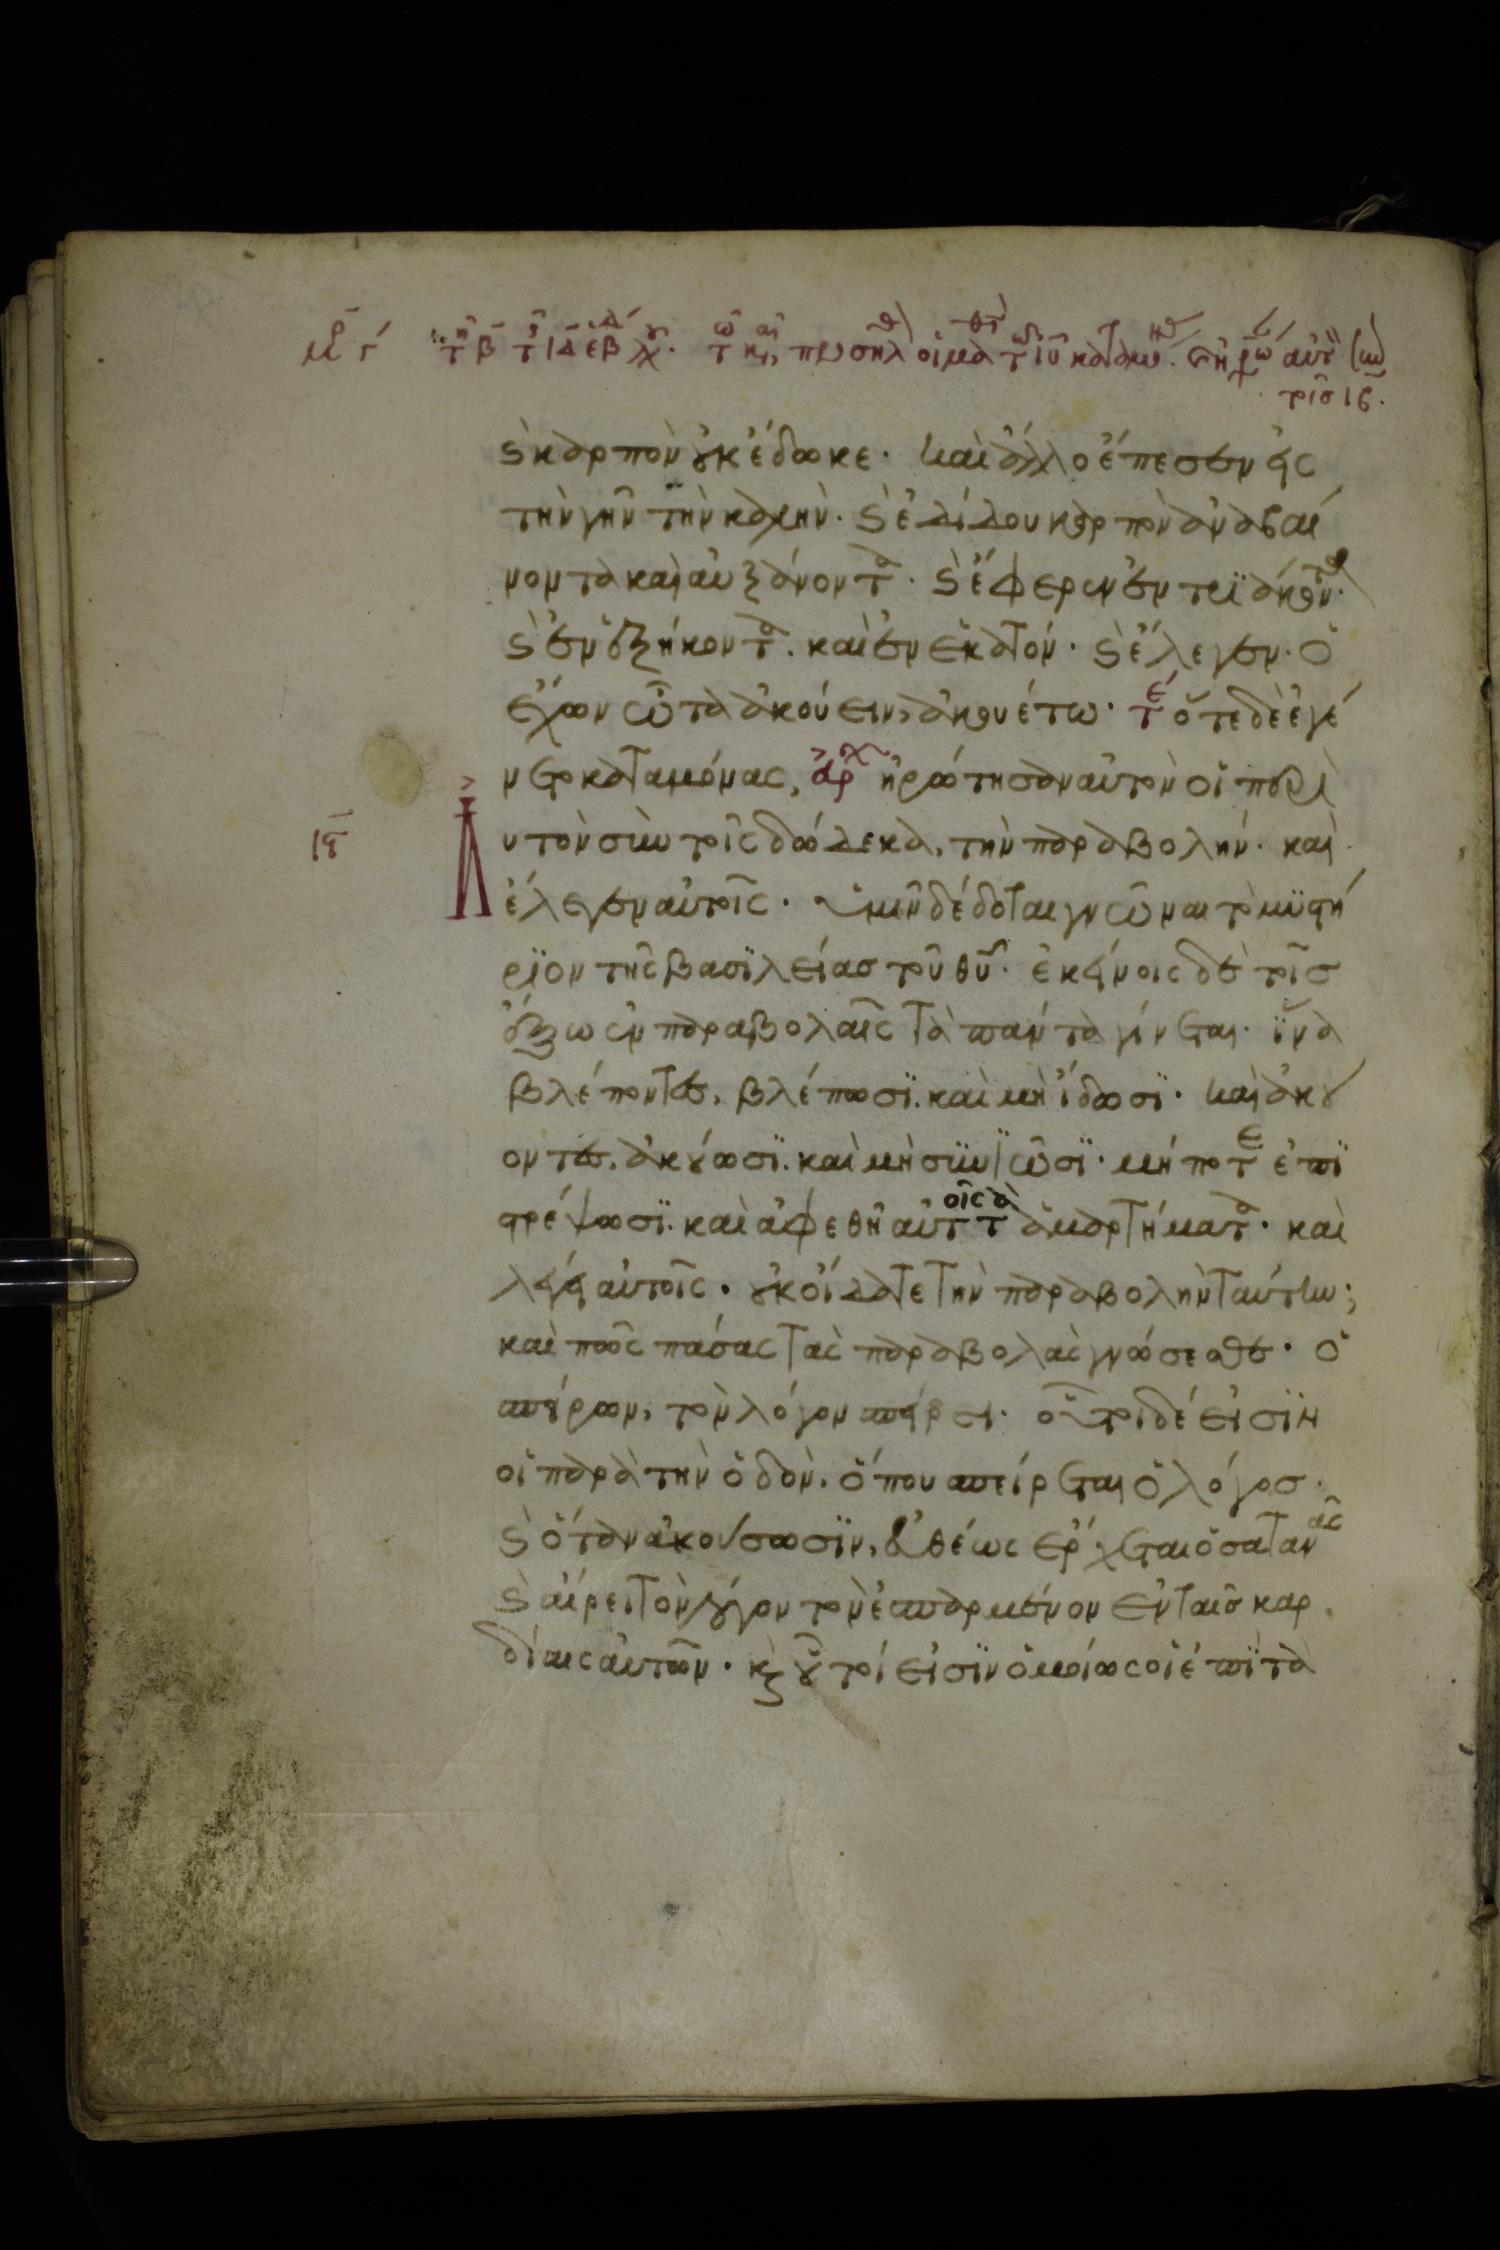 μρ γ τῆ β τ ιδ ἑβδ χ τω κ, προσῆλθ οἱ μαθτ τω ιυ κατ
τρισ ις.
ϛ καρπὸν οὐκ ἔδωκε. καὶ ἄλλο ἔπεσεν εἰς
τὴν γῆν τὴν καλὴν. ϛ ἐδίδου καρπὸν ἀναβαί
νοντα καὶ αὐξάνοντα. ϛ ἔφερεν ἐν τριάκοντα.
ϛ ἐν ἑξήκοντα. καὶ ἐν ἑκατόν. ϛ ἔλεγεν. ὁ
ἔχων ὦτα ἀκούειν, ἀκουέτω. τέ ὅτε δὲ ἐγέ
νετο καταμόνας, ἀρχ ἠρώτησαν αὐτὸν οἱ περὶ
ις αυτὸν σὺν τοῖς δώδεκα, τὴν παραβολήν. καὶ
ἔλεγεν αὐτοῖς. ὑμῖν δέδοται γνῶναι τὸ μυστή
ριον τῆς βασιλείας τοῦ θυ. ἐκείνοις δὲ τοῖς
ἔξω ἐν παραβολαῖς τὰ πάντα γίνεται. ἵνα
βλέποντες, βλέπωσι. καὶ μὴ ἴδωσι. καὶ ἀκού
οντες, ἀκούωσι. καὶ μὴ συνιῶσι. μήποτε ἐπι
στρέψωσι. καὶ ἀφεθῇ αὐτοῖς τὰ ἁμαρτήματα. καὶ
λέγει αὐτοῖς. οὐκ οἴδατε τὴν παραβολὴν ταύτην;
καὶ πῶς πάσας τὰς παραβολὰς γνώσεσθε. ὁ
σπείρων, τὸν λόγον σπείρει. οὗτοι δέ εἰσιν
οἱ παρὰ τὴν ὁδὸν, ὅπου σπείρεται ὁ λόγοσ.
ϛ ὅταν ἀκούσωσιν, εὐθέως ἔρχεται ὁ σατανᾶς
ϛ αἴρει τὸν λόγον τὸν ἐσπαρμένον ἐν ταῖς καρ
δίαις αὐτῶν. κ οὗτοί εἰσιν ὁμοίως οἱ ἐπὶ τὰ